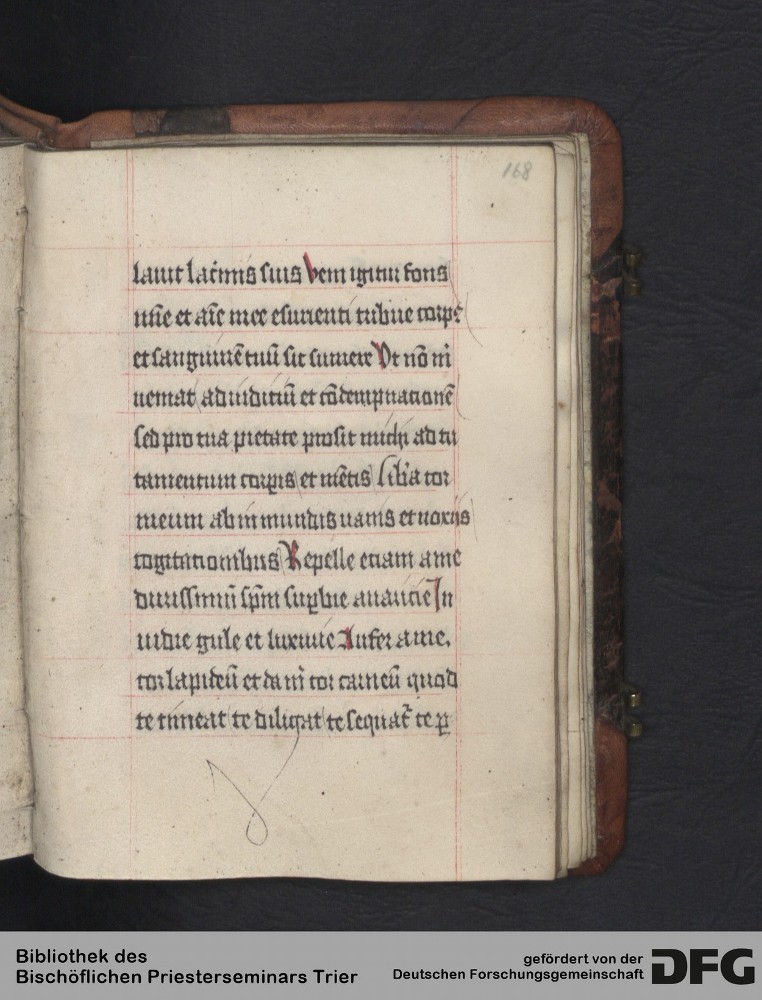 168
lauit lac̃mis suis Veni igitur fons
uñe et aĩe mee esurienti tribue corp⁹
et sanguinẽ tuũ sic sumere Vt nõ m̃
ueniat ad iudiciũ et cõdempnationẽ
sed pro tua pietate prosit michi ad tu
tamentum corpis et mẽtis libr̃a cor
meum ab inmundis uanis et noxiis
cogitationibus Repelle etiam a me
durissimũ sp̃m suꝑbie auaricie In
uidie gule et luxurie Aufer a me.
cor lapideũ et da m̃ cor carneũ quod
te timeat te diligat te sequat̃ te ꝑ
Bibliothek des
Bischöflichen Priesterseminars Trier
gefördert von der
Deutschen Forschungsgemeinschaft
DFG